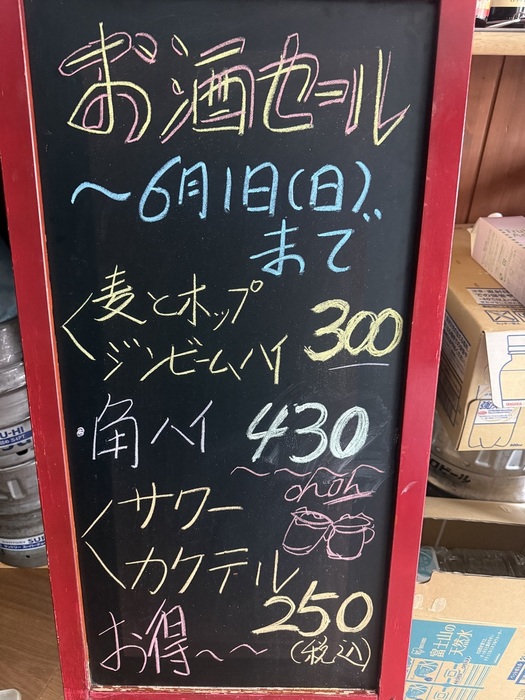 お酒セール
～6月1日(日)
まで
麦とホップ
ジンビームハイ 300
・角ハイ 430
サワー
カクテル
250
お得～～ (税込)
富士山の
天然水